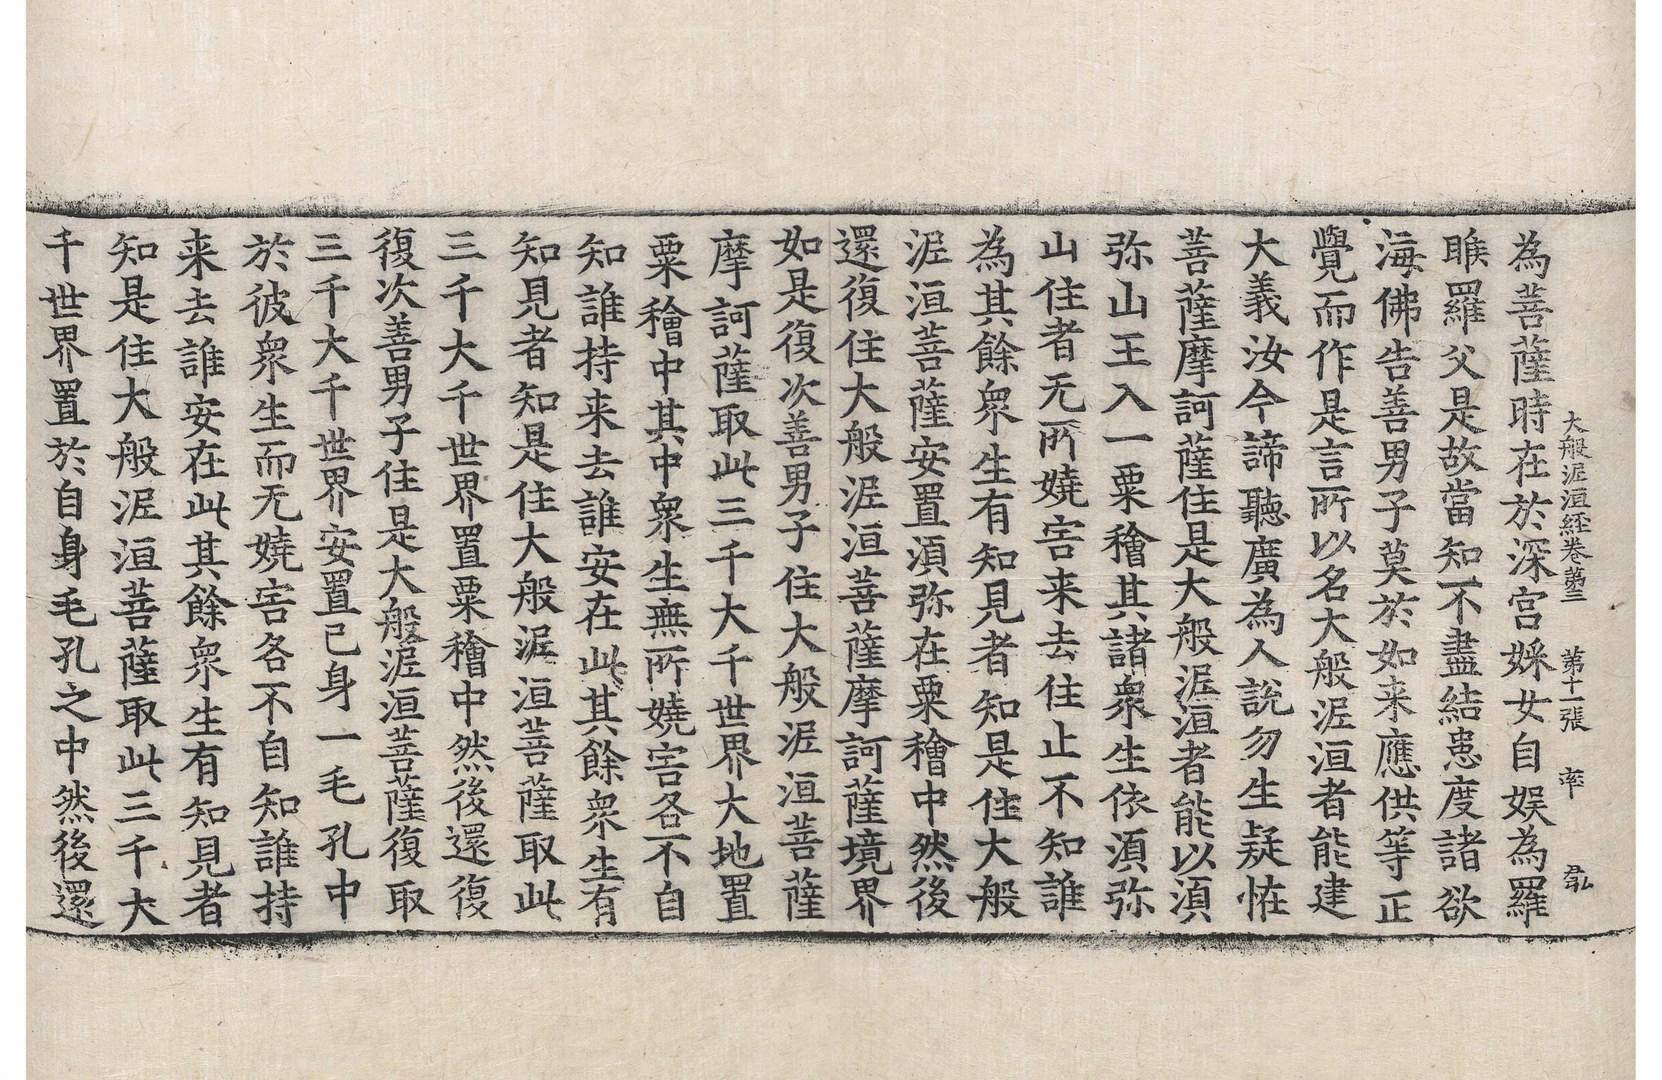 大般泥洹經卷第三 第十一張 率 君弘
為菩薩時在於深宮婇女自娛為羅
睺羅父是故當知不盡結患度諸欲
海佛告善男子莫於如来應供等正
覺而作是言所以名大般泥洹者能建
大義汝今諦聽廣為人說勿生疑恠
菩薩摩訶薩住是大般泥洹者能以湏
弥山王入一粟𥢶其諸衆生依湏弥
山住者无所嬈害来去住止不知誰
為其餘衆生有知見者知是住大般
泥洹菩薩安置湏弥在粟𥢶中然後
還復住大般泥洹菩薩摩訶薩境界
如是復次善男子住大般泥洹菩薩
摩訶薩取此三千大千世界大地置
粟𥢶中其中衆生無所嬈害各不自
知誰持来去誰安在此其餘衆生有
知見者知是住大般泥洹菩薩取此
三千大千世界置粟𥢶中然後還復
復次善男子住是大般泥洹菩薩復取
三千大千世界安置己身一毛孔中
於彼衆生而无嬈害各不自知誰持
来去誰安在此其餘衆生有知見者
知是住大般泥洹菩薩取此三千大
千世界置於自身毛孔之中然後還